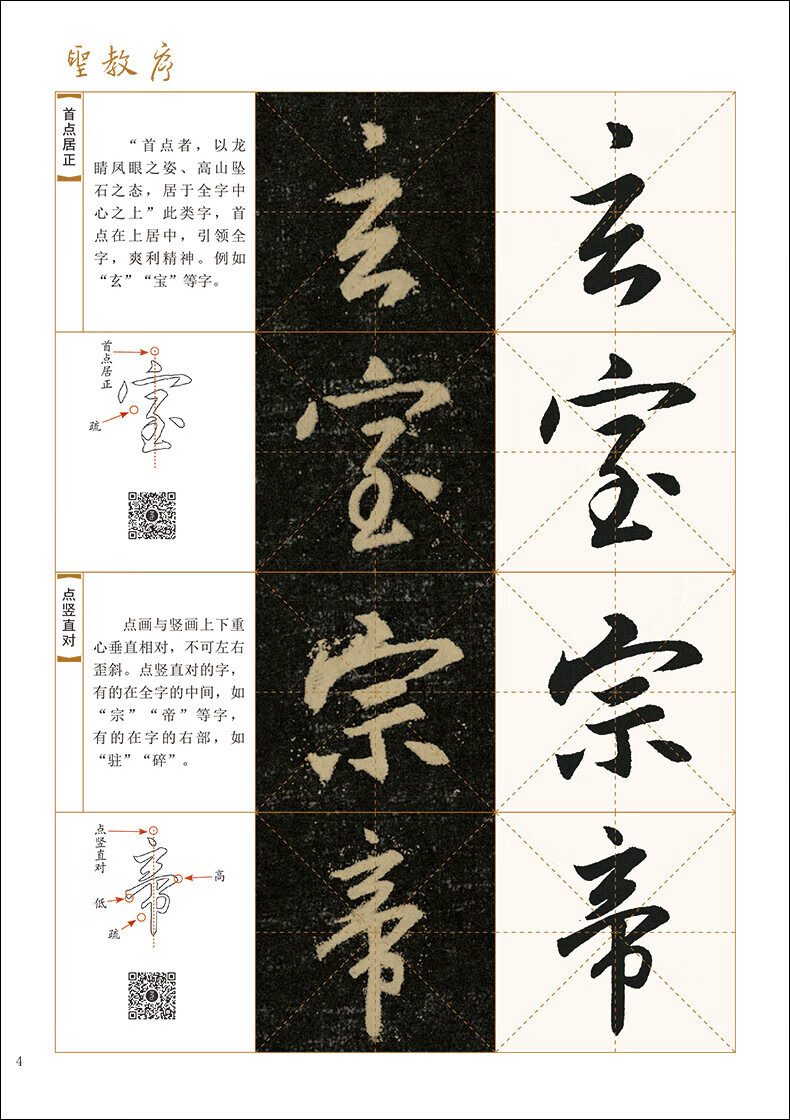 聖教序
首点居正
“首点者，以龙
睛凤眼之姿、高山坠
石之态，居于全字中
心之上”此类字，首
点在上居中，引领全
字，爽利精神。例如
“玄”“宝”等字。
玄
玄
首点居正
疏
宝
宝
宝
点竖直对
点画与竖画上下重
心垂直相对，不可左右
歪斜。点竖直对的字，
有的在全字的中间，如
“宗”“帝”等字，
有的在字的右部，如
“驻”“碎”。
宗
宗
点竖直对
高
低
疏
帝
帝
帝
4